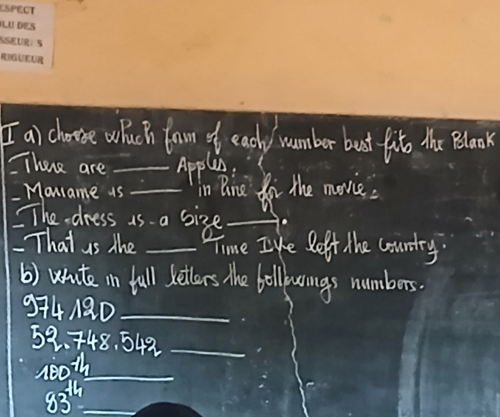 ESPECT
OLU DES
SSEURS
RIGUEUR
I a) choose which form of each number best fits the Blank
- There are ____ Apples.
- Maname is ____ in line for the movie.
- The dress is a size ____.
- That is the ____ Time I've left the country.
b) write in full letters the followings numbers.
974120 ____
52.748.542 ____
100th ____
83th ____